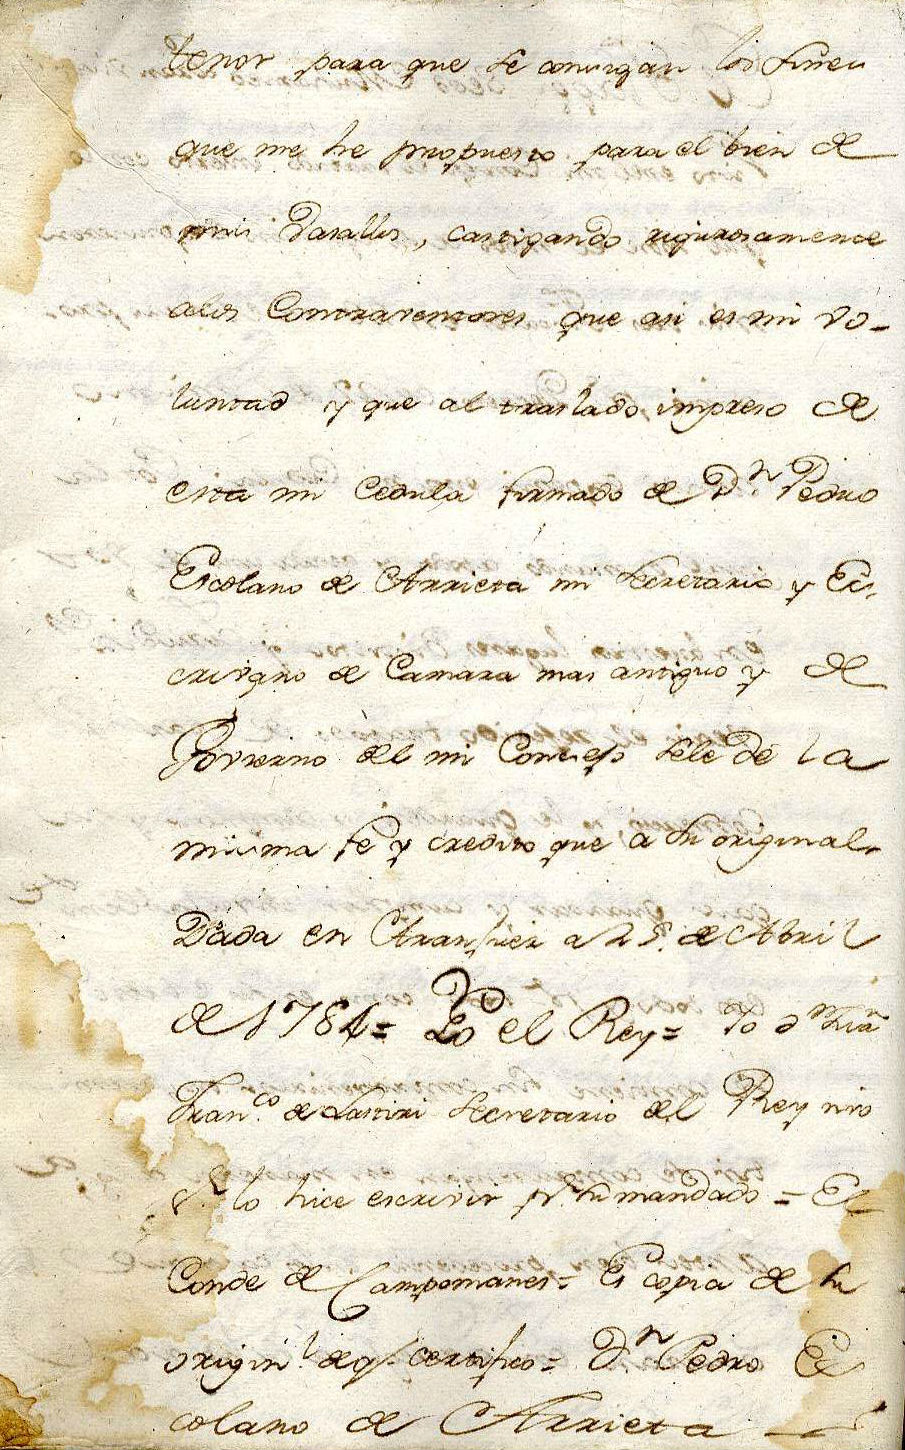 tenor para que se consigan los fines
que me he propuesto para el bien de
mis Vasallos, castigando rigurosamente
alos Contraventores que asi es mi vo-
luntad y que al traslado impreso de
esta mi Cedula firmado de Dn. Pedro
Escolano de Arrieta mi Secretario y Es-
crivano de Camara mas antiguo y de
Govierno del mi Consejo sele dé la
misma fé y credito que, a su original.
Dada en Aranjuez a 25. de Abril
de 1784 = Yo el Rey = Yo dn Juan
Franco. de Lastiri Secretario del Rey nro
Sr. lo hice escrivir pr. su mandado = El
Conde de Campomanes = Es copia de su
origin.l de q.e certifico = Dn. Pedro Es
colano de Arrieta